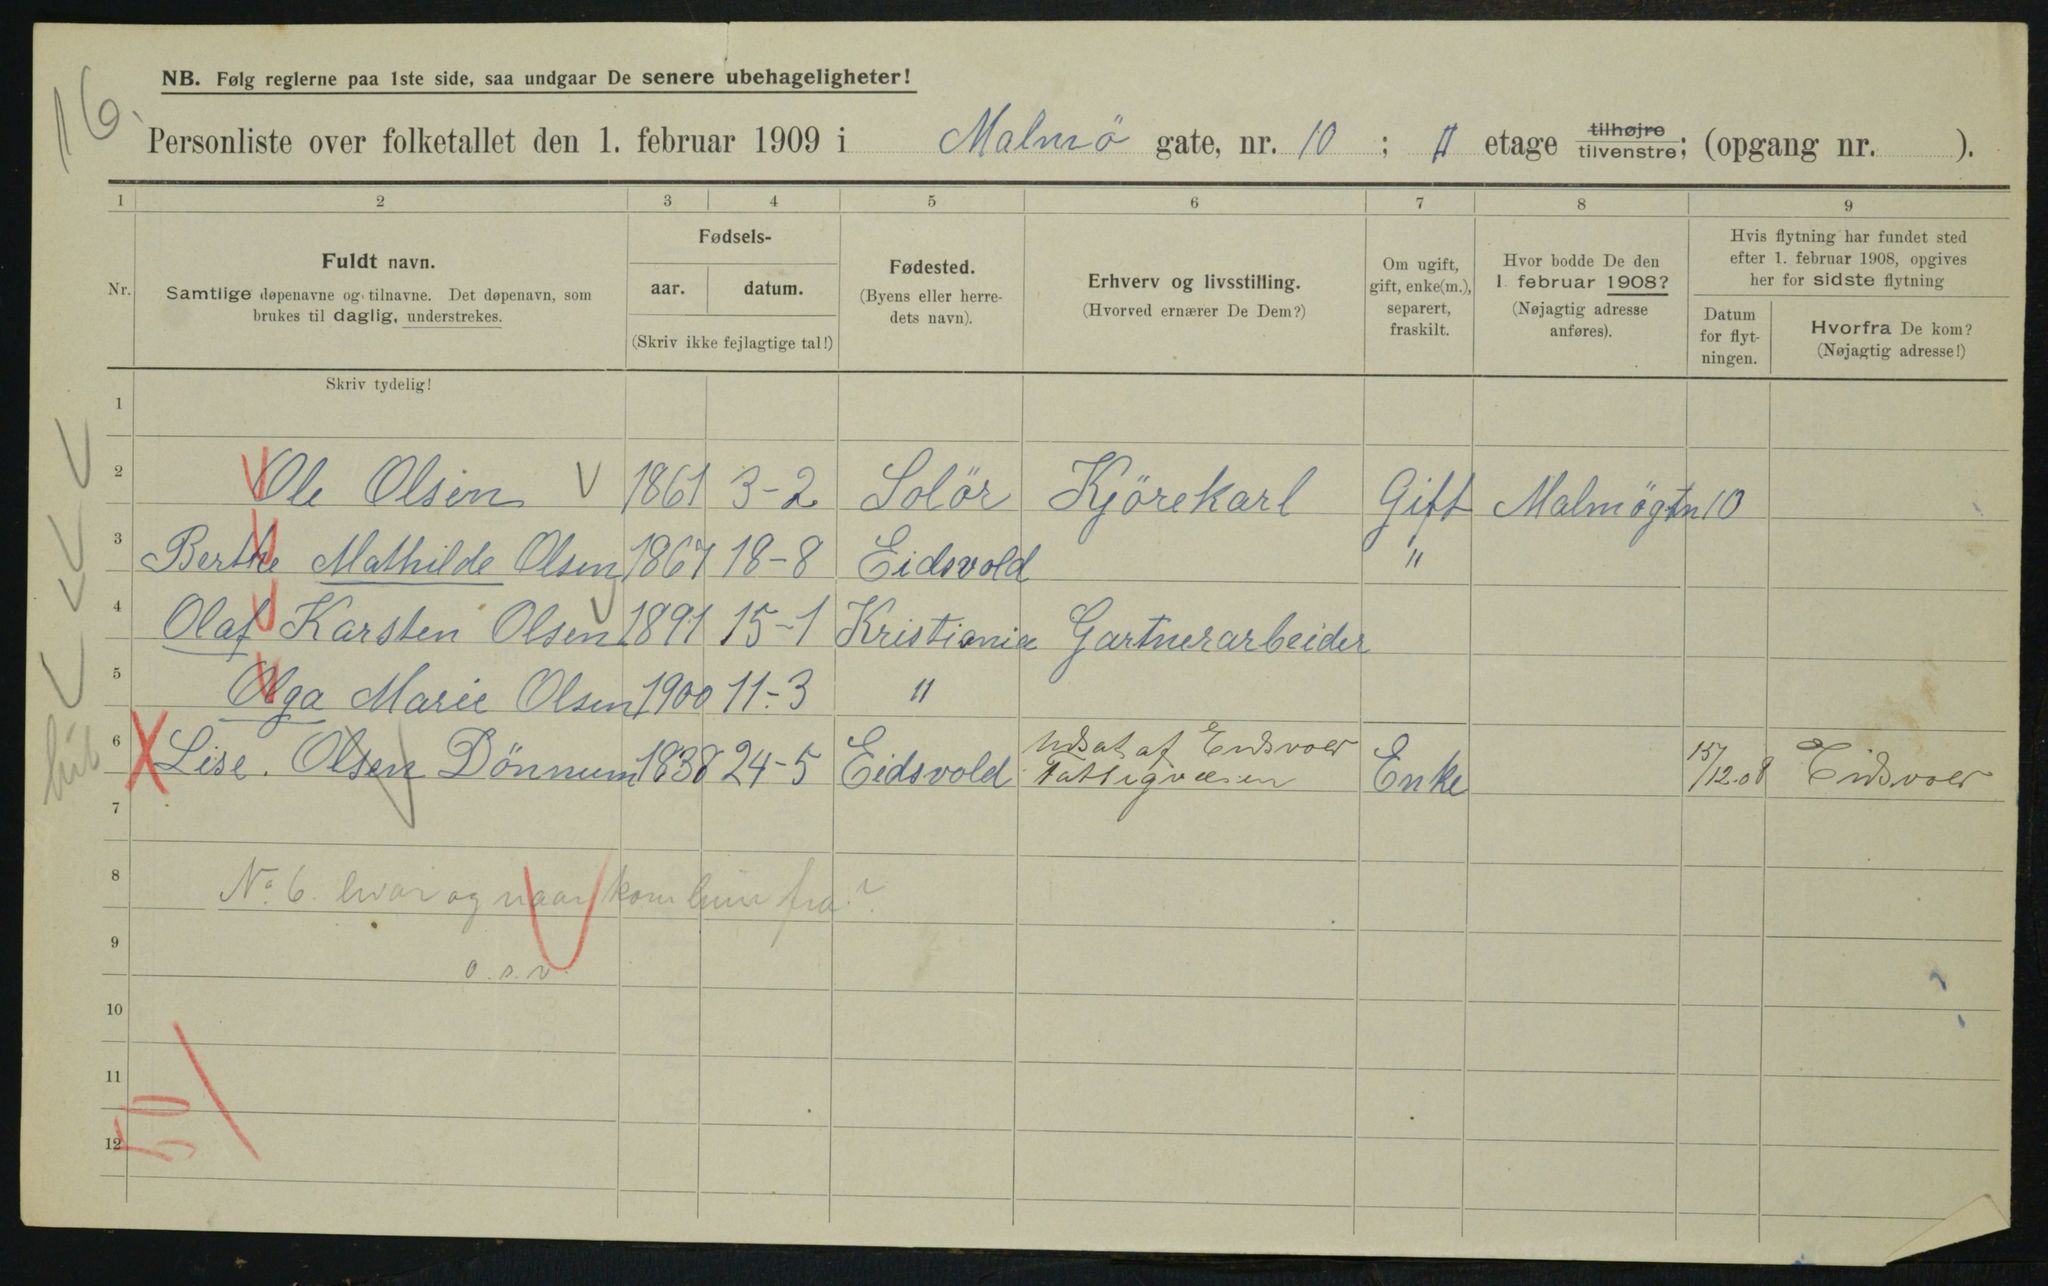 16.
NB. Følg reglerne paa 1ste side, saa undgaar De senere ubehageligheter!
Personliste over folketallet den 1. februar 1909 i Malmö gate, nr. 10 ; II etage tilhøjre tilvenstre; (opgang nr. ).
1 2 3 4 5 6 7 8 9
Nr.
Fuldt navn.
Samtlige døpenavne og tilnavne. Det døpenavn, som
brukes til daglig, understrekes.
Skriv tydelig!
Fødsels-
aar. datum.
(Skriv ikke fejlagtige tal!)
Fødested.
(Byens eller herre-
dets navn).
Erhverv og livsstilling.
(Hvorved ernærer De Dem?)
Om ugift,
gift, enke(m.),
separert,
fraskilt.
Hvor bodde De den
1. februar 1908?
(Nøjagtig adresse
anføres).
Hvis flytning har fundet sted
efter 1. februar 1908, opgives
her for sidste flytning
Datum
for flyt-
ningen.
Hvorfra De kom?
(Nøjagtig adresse!)
1
2 Ole Olsen 1861 3-2 Solör Kjörekarl Gift Malmögtn 10
3 Berthe Mathilde Olsen 1867 18-8 Eidsvold "
4 Olaf Karsten Olsen 1891 15-1 Kristiania Gartnerarbeider
5 Olga Marie Olsen 1900 11-3 "
6 Lise. Olsen Dönnum 1838 24-5 Eidsvold Udsat af Eidsvold Fattigvæsen Enke 15/12.08 Eidsvold
7
8 No 6. hvor og naar kom hun fra?
9
o.s.v.
10
11
12
50